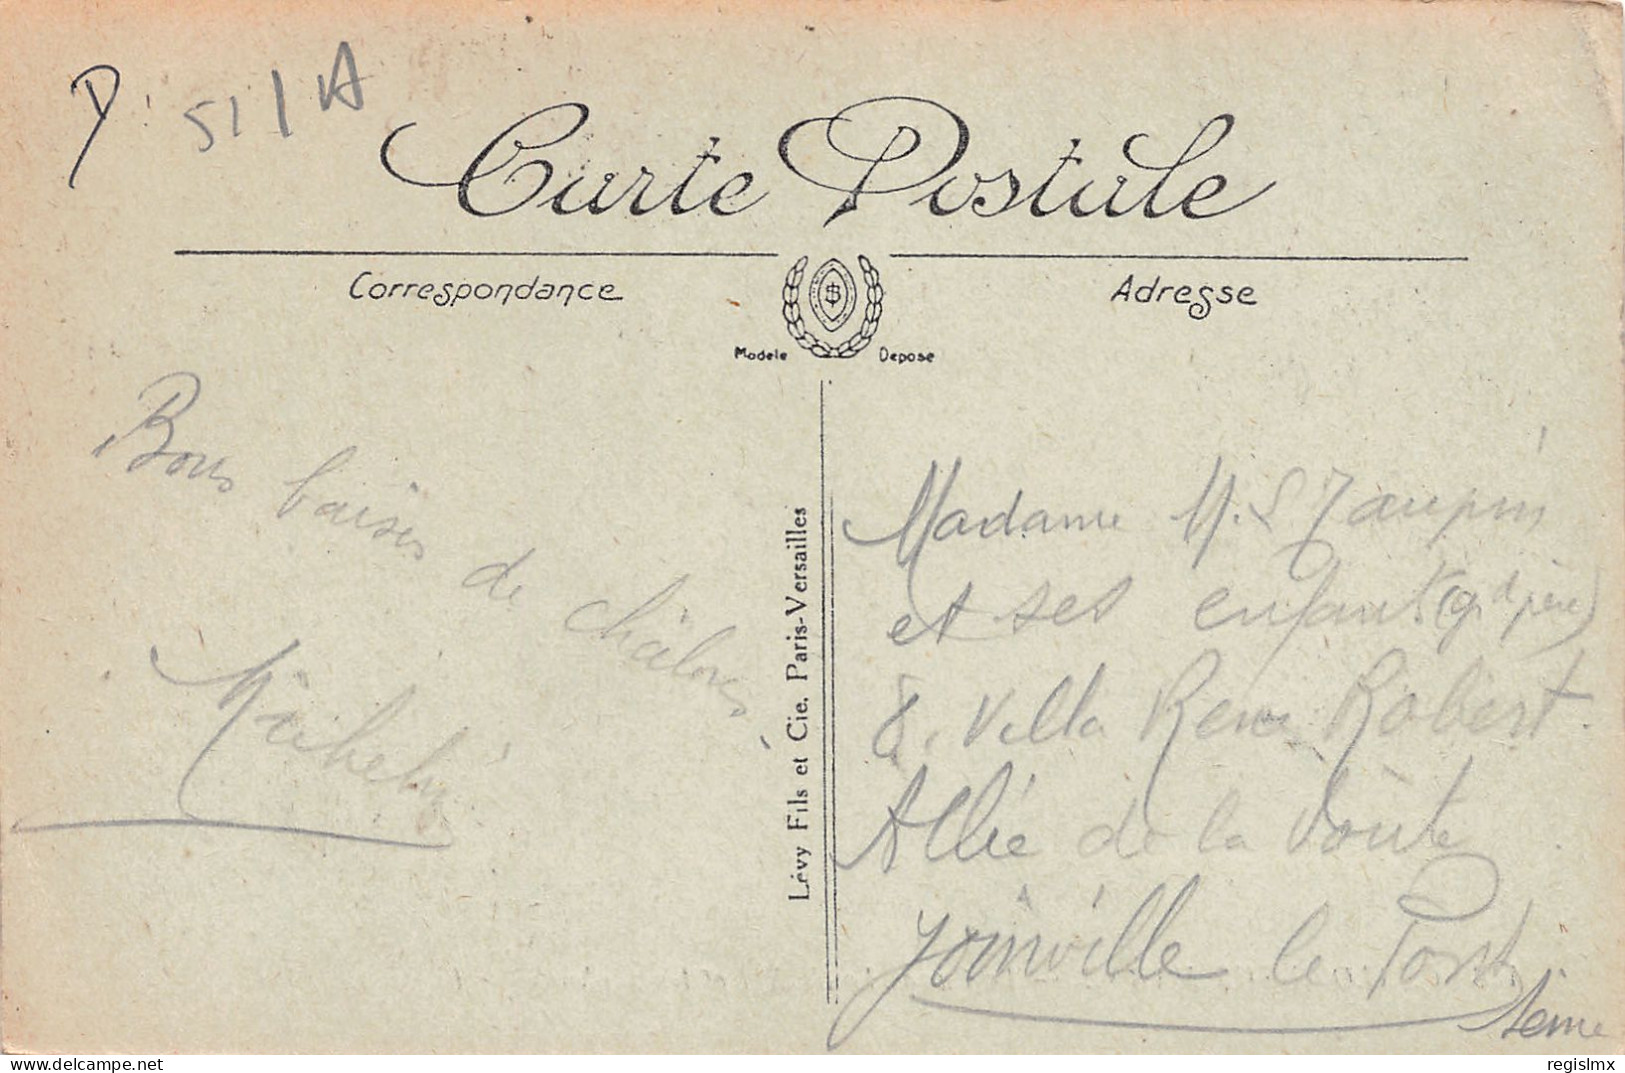 51 / A
Carte Postale
Correspondance
Adresse
Modèle Déposé
Bons baisers de Châlons
Michel
Lévy Fils et Cie. Paris-Versailles
Madame M.
et ses enfants (gd père)
8, Villa René Robert.
Allée de la Voûte
Joinville le Pont
Seine
delcampe.net
regislmx